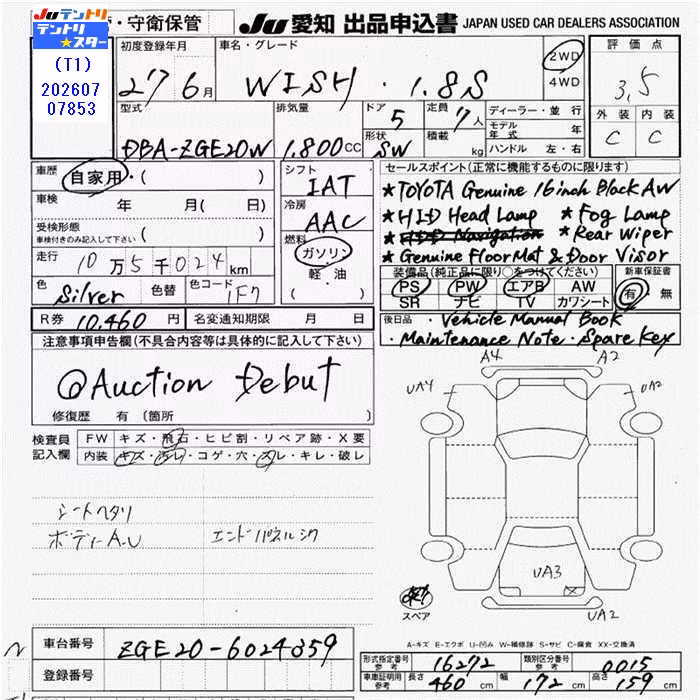 Ju テントリ
テントリ★スター
(T1)
202607
07853
・守衛保管
Ju 愛知 出品申込書 JAPAN USED CAR DEALERS ASSOCIATION
初度登録年月 車名・グレード
27 6月 WISH・1.8S
2WD
4WD
評価点
3,5
外装 内装
C C
型式 排気量 ドア 定員 ディーラー・並行
DBA-ZGE20W 1,800cc 5 7人
形状 積載 モデル年式 年
SW kg ハンドル 左・右
車歴 自家用・( )
車検 年 月( 日)
受検形態
車検付きのみ記入して下さい ( )
走行 10万5千024km
色 Silver 色替 色コード 1F7
R券 10,460円 名変通知期限 月 日
シフト
IAT
冷房
AAC
燃料
ガソリン
軽・油
セールスポイント(正常に機能するものに限ります)
★TOYOTA Genuine 16inch Black AW
★HID Head Lamp ★Fog Lamp
★HDD Navigation ★Rear Wiper
★Genuine Floor Mat & Door Visor
装備品(純正品に限り○をつけてください) 新車保証書
PS PW エアB AW 有・無
SR ナビ TV カワシート
後日品・Vehicle Manual Book
・Maintenance Note・Spare Key
注意事項申告欄(不具合内容等は具体的に記入して下さい)
@Auction Debut
修復歴 有 (箇所
検査員 FW キズ・飛石・ヒビ割・リペア跡・X要
記入欄 内装 キズ・汚レ・コゲ・穴・スレ・キレ・破レ
シートヘタリ
ボディーA.U エンドパネルシワ
A4 A2
UA4 UA2
UA3
UA2
スペア
A-キズ E-エクボ U-凹み W-補修跡 S-サビ C-腐食 XX-交換済
車台番号 ZGE20-6024359
登録番号
形式指定番号 参考 16272 類別区分番号 参考 0015
車庫証明用 参考 長さ 460cm 幅 172cm 高さ 159cm